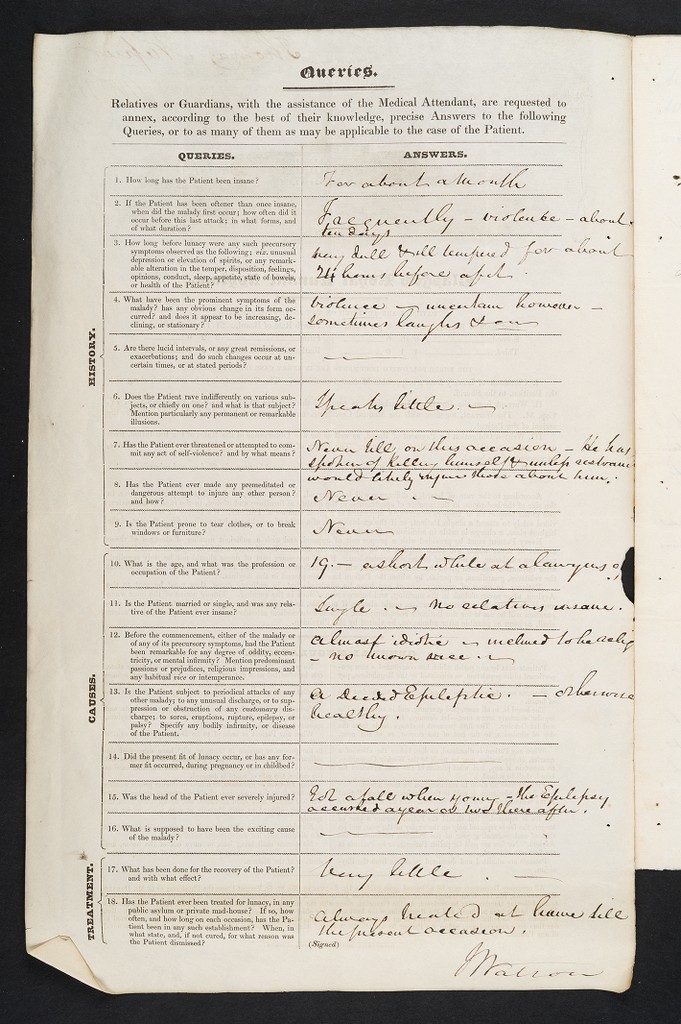 Queries.
Relatives or Guardians, with the assistance of the Medical Attendant, are requested to
annex, according to the best of their knowledge, precise Answers to the following
Queries, or to as many of them as may be applicable to the case of the Patient.
QUERIES.
ANSWERS.
HISTORY.
1. How long has the Patient been insane?
For about a Month
2. If the Patient has been oftener than once insane,
when did the malady first occur; how often did it
occur before this last attack: in what forms, and
of what duration?
Frequently – violence – about
ten days
3. How long before lunacy were any such precursory
symptoms observed as the following; viz. unusual
depression or elevation of spirits, or any remark-
able alteration in the temper, disposition, feelings,
opinions, conduct, sleep, appetite, state of bowels,
or health of the Patient?
very dull & ill tempered for about
24 hours before a fit.
4. What have been the prominent symptoms of the
malady? has any obvious change in its form oc-
curred? and does it appear to be increasing, de-
clining, or stationary?
Violence – uncertain however –
sometimes laughs &
5. Are there lucid intervals, or any great remissions, or
exacerbations; and do such changes occur at un-
certain times, or at stated periods?
—
6. Does the Patient rave indifferently on various sub-
jects, or chiefly on one? and what is that subject?
Mention particularly any permanent or remarkable
illusions.
Speaks little. –
7. Has the Patient ever threatened or attempted to com-
mit any act of self-violence? and by what means?
Never till on this occasion – He has
spoken of killing himself & unless
would likely injure those about him.
8. Has the Patient ever made any premeditated or
dangerous attempt to injure any other person?
and how?
Never. –
9. Is the Patient prone to tear clothes, or to break
windows or furniture?
Never
CAUSES.
10. What is the age, and what was the profession or
occupation of the Patient?
19. – a short while at a lawyers
11. Is the Patient married or single, and was any rela-
tive of the Patient ever insane?
Single. – no relatives insane.
12. Before the commencement, either of the malady or
of any of its precursory symptoms, had the Patient
been remarkable for any degree of oddity, eccen-
tricity, or mental infirmity? Mention predominant
passions or prejudices, religious impressions, and
any habitual vice or intemperance.
almost idiotic – inclined to be relig
– no known vice. –
13. Is the Patient subject to periodical attacks of any
other malady; to any unusual discharge, or to sup-
pression or obstruction of any customary dis-
charge; to sores, eruptions, rupture, epilepsy, or
palsy? Specify any bodily infirmity, or disease
of the Patient.
a decided Epileptic. – otherwise
healthy.
14. Did the present fit of lunacy occur, or has any for-
mer fit occurred, during pregnancy or in childbed?
—
15. Was the head of the Patient ever severely injured?
Got a fall when young – the Epilepsy
occurred a year or two thereafter.
16. What is supposed to have been the exciting cause
of the malady?
—
TREATMENT.
17. What has been done for the recovery of the Patient?
and with what effect?
Very little. –
18. Has the Patient ever been treated for lunacy, in any
public asylum or private mad-house? If so, how
often, and how long on each occasion, has the Pa-
tient been in any such establishment? When, in
what state, and, if not cured, for what reason was
the Patient dismissed?
always treated at home till
the present occasion.
(Signed)
J Watson